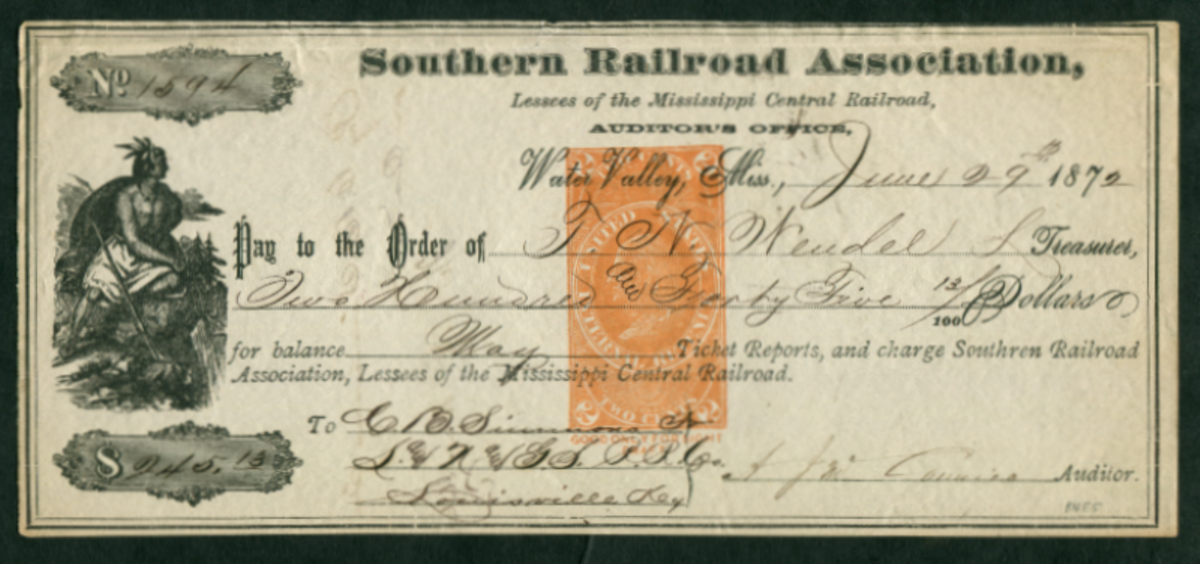 No. 1594
Southern Railroad Association,
Lessees of the Mississippi Central Railroad,
AUDITOR'S OFFICE,
Water Valley, Miss., June 29th 1872
Pay to the Order of T. N. Wendel Treasurer,
Two Hundred and Forty Five 13/100 Dollars
for balance May Ticket Reports, and charge Southren Railroad
Association, Lessees of the Mississippi Central Railroad.
To C. B. Simmons
Louisville Ky
$ 245.13
Auditor.
UNITED STATES
INTERNAL REVENUE
TWO CENTS
2 2
GOOD ONLY FOR SIGHT
DRAFT